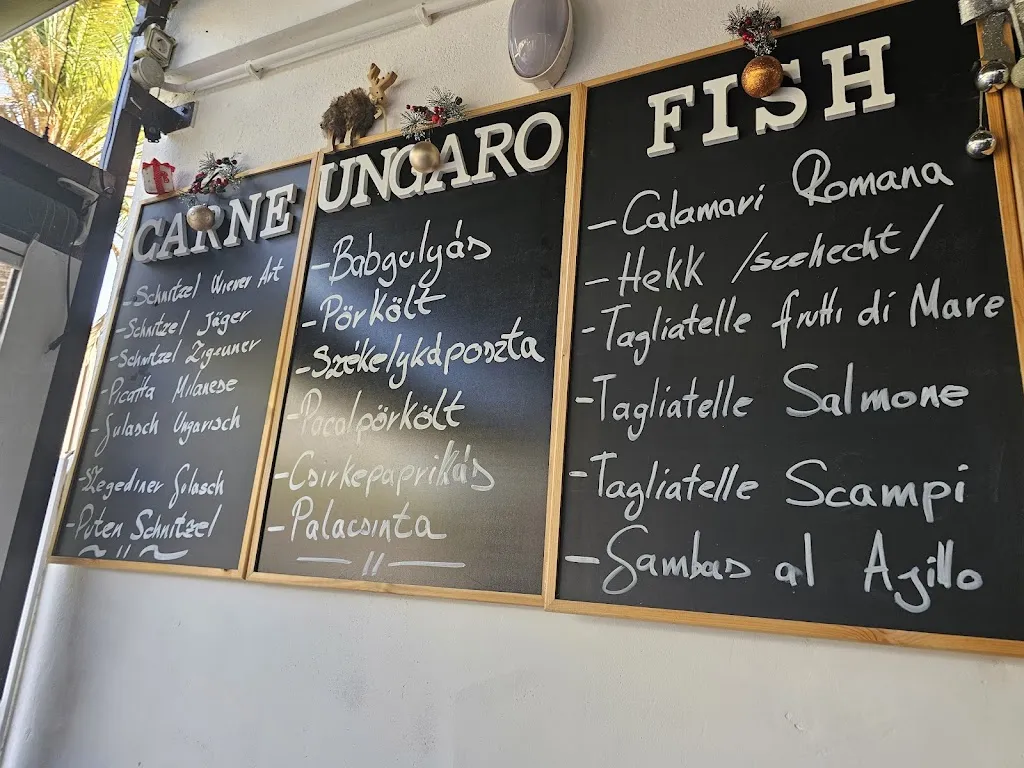 CARNE
- Schnitzel Wiener Art
- Schnitzel Jäger
- Schnitzel Zigeuner
- Picatta Milanese
- Gulasch Ungarisch
- Szegediner Gulasch
- Puten Schnitzel
~ 11 ~
UNGARO
- Babgulyás
- Pörkölt
- Székelykáposzta
- Pacalpörkölt
- Csirkepaprikás
- Palacsinta
— 11 —
FISH
- Calamari Romana
- Hekk /seehecht/
- Tagliatelle frutti di Mare
- Tagliatelle Salmone
- Tagliatelle Scampi
- Gambas al Ajillo